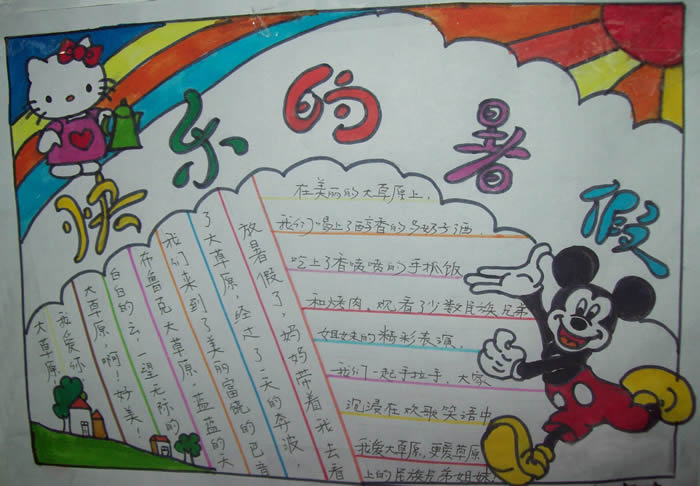 快乐的暑假
放暑假了，妈妈带着我去看
了大草原，经过了一天的奔波，
我们来到了美丽富饶的巴音
布鲁克大草原，蓝蓝的天
白白的云，一望无际的
大草原，啊！好美！
我爱你
大草原
在美丽的大草原上，
我们喝上了醇香的马奶子酒
吃上了香喷喷的手抓饭
和烤肉，观看了少数民族兄弟
姐妹的精彩表演，
我们一起手拉手，大家
沉浸在欢歌笑语中
我爱大草原，更爱草原
上的民族兄弟姐妹